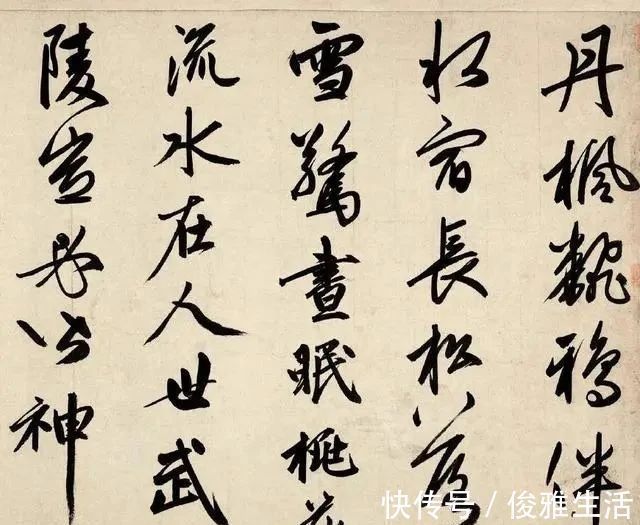 丹楓飜鴉伴
水宿長松落
雪驚晝眠桃花
流水在人世武
陵豈必皆神
快传号 / 俊雅生活